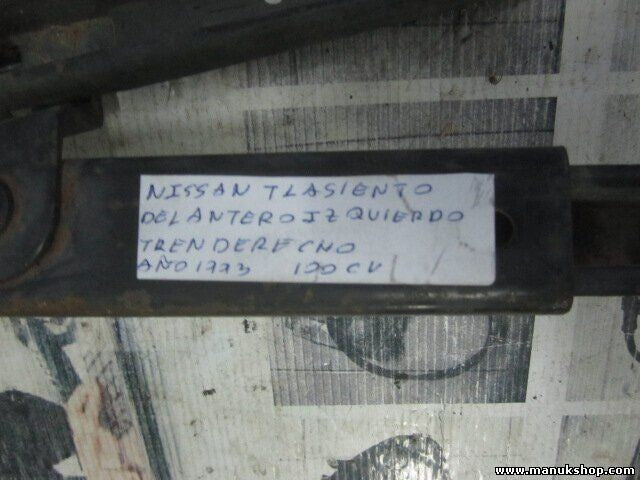 NISSAN TLASIENTO
DELANTERO IZQUIERDO
TREN DERECHO
AÑO 1993 100 CV
www.manukshop.com